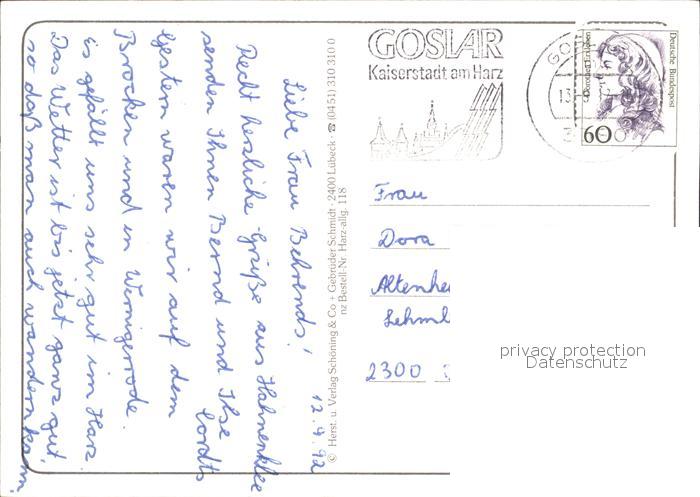 GOSLAR
Kaiserstadt am Harz
GO
13
3
Deutsche Bundespost
60
12.4.92
Liebe Frau Behrends!
Recht herzliche Grüße aus Hahnenklee
senden Ihnen Bernd und Ilse
Cordts
Gestern waren wir auf dem
Brocken und in Wernigerode.
Es gefällt uns sehr gut im Harz.
Das Wetter ist bis jetzt ganz gut,
so daß man auch wandern kann.
© Herst. u. Verlag Schöning & Co + Gebrüder Schmidt · 2400 Lübeck · ☎ (0451) 310 310 0
nz Bestell-Nr. Harz-allg. 118
Frau
Dora
Altenhe
Lehmb
2300
privacy protection
Datenschutz